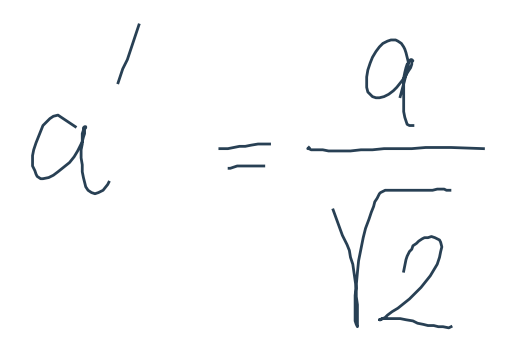 a' = \frac{a}{\sqrt{2}}